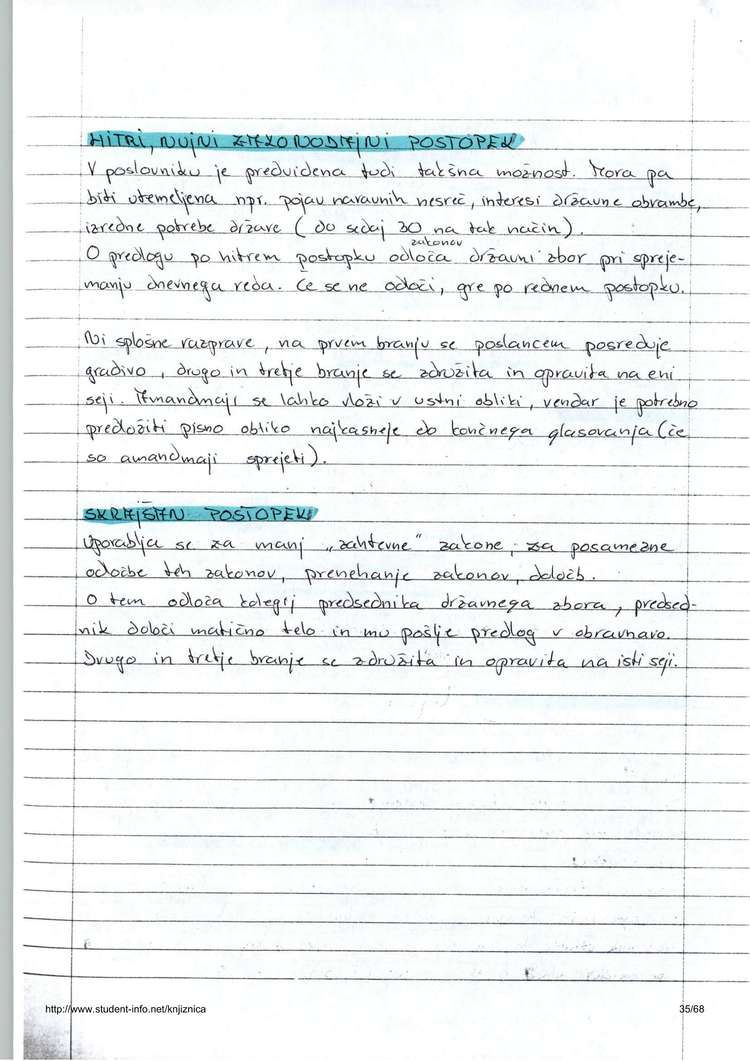 HITRI, NUJNI ZAKONODAJNI POSTOPEK
V poslovniku je predvidena tudi takšna možnost. Mora pa
biti utemeljena npr. pojav naravnih nesreč, interesi državne obrambe,
izredne potrebe države (do sedaj 30 na tak način).
zakonov
O predlogu po hitrem postopku odloča državni zbor pri spreje-
manju dnevnega reda. Če se ne odloči, gre po rednem postopku.
Ni splošne razprave, na prvem branju se poslancem posreduje
gradivo, drugo in tretje branje se združita in opravita na eni
seji. Amandmaji se lahko vloži v ustni obliki, vendar je potrebno
predložiti pisno obliko najkasneje do končnega glasovanja (če
so amandmaji sprejeti).
SKRAJŠAN POSTOPEK
Uporablja se za manj „zahtevne" zakone, za posamezne
odločbe teh zakonov, prenehanje zakonov, določb.
O tem odloča kolegij predsednika državnega zbora, predsed-
nik določi matično telo in mu pošlje predlog v obravnavo.
Drugo in tretje branje se združita in opravita na isti seji.
http://www.student-info.net/knjiznica
35/68